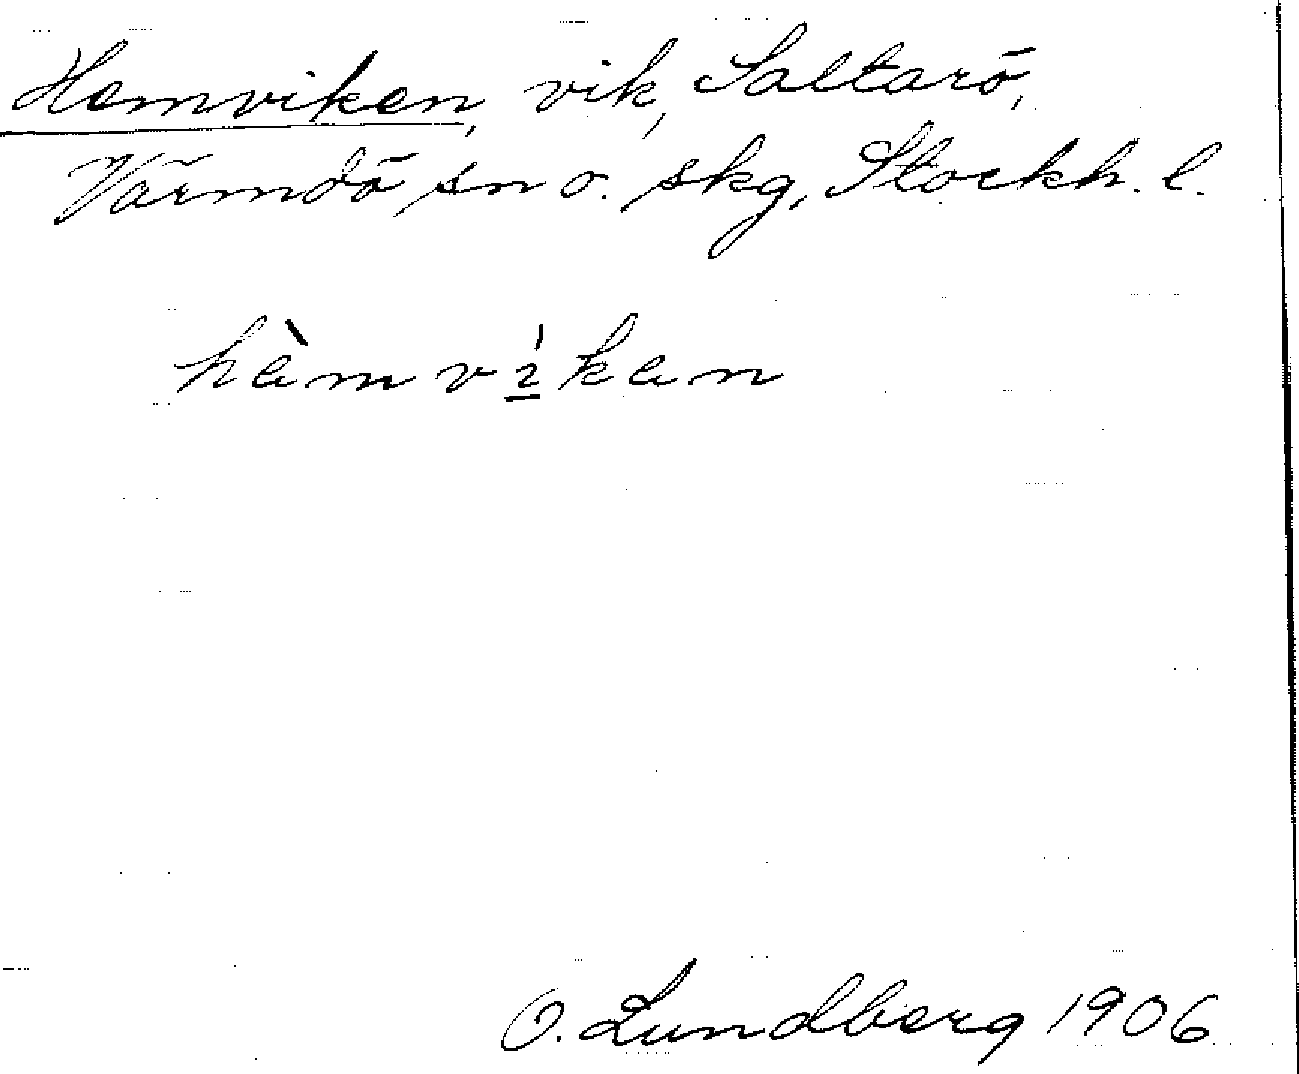 Hemviken, vik, Saltarö,
Värmdö sn o. skg, Stockh. l.
hèmví̲ken
O. Lundberg 1906